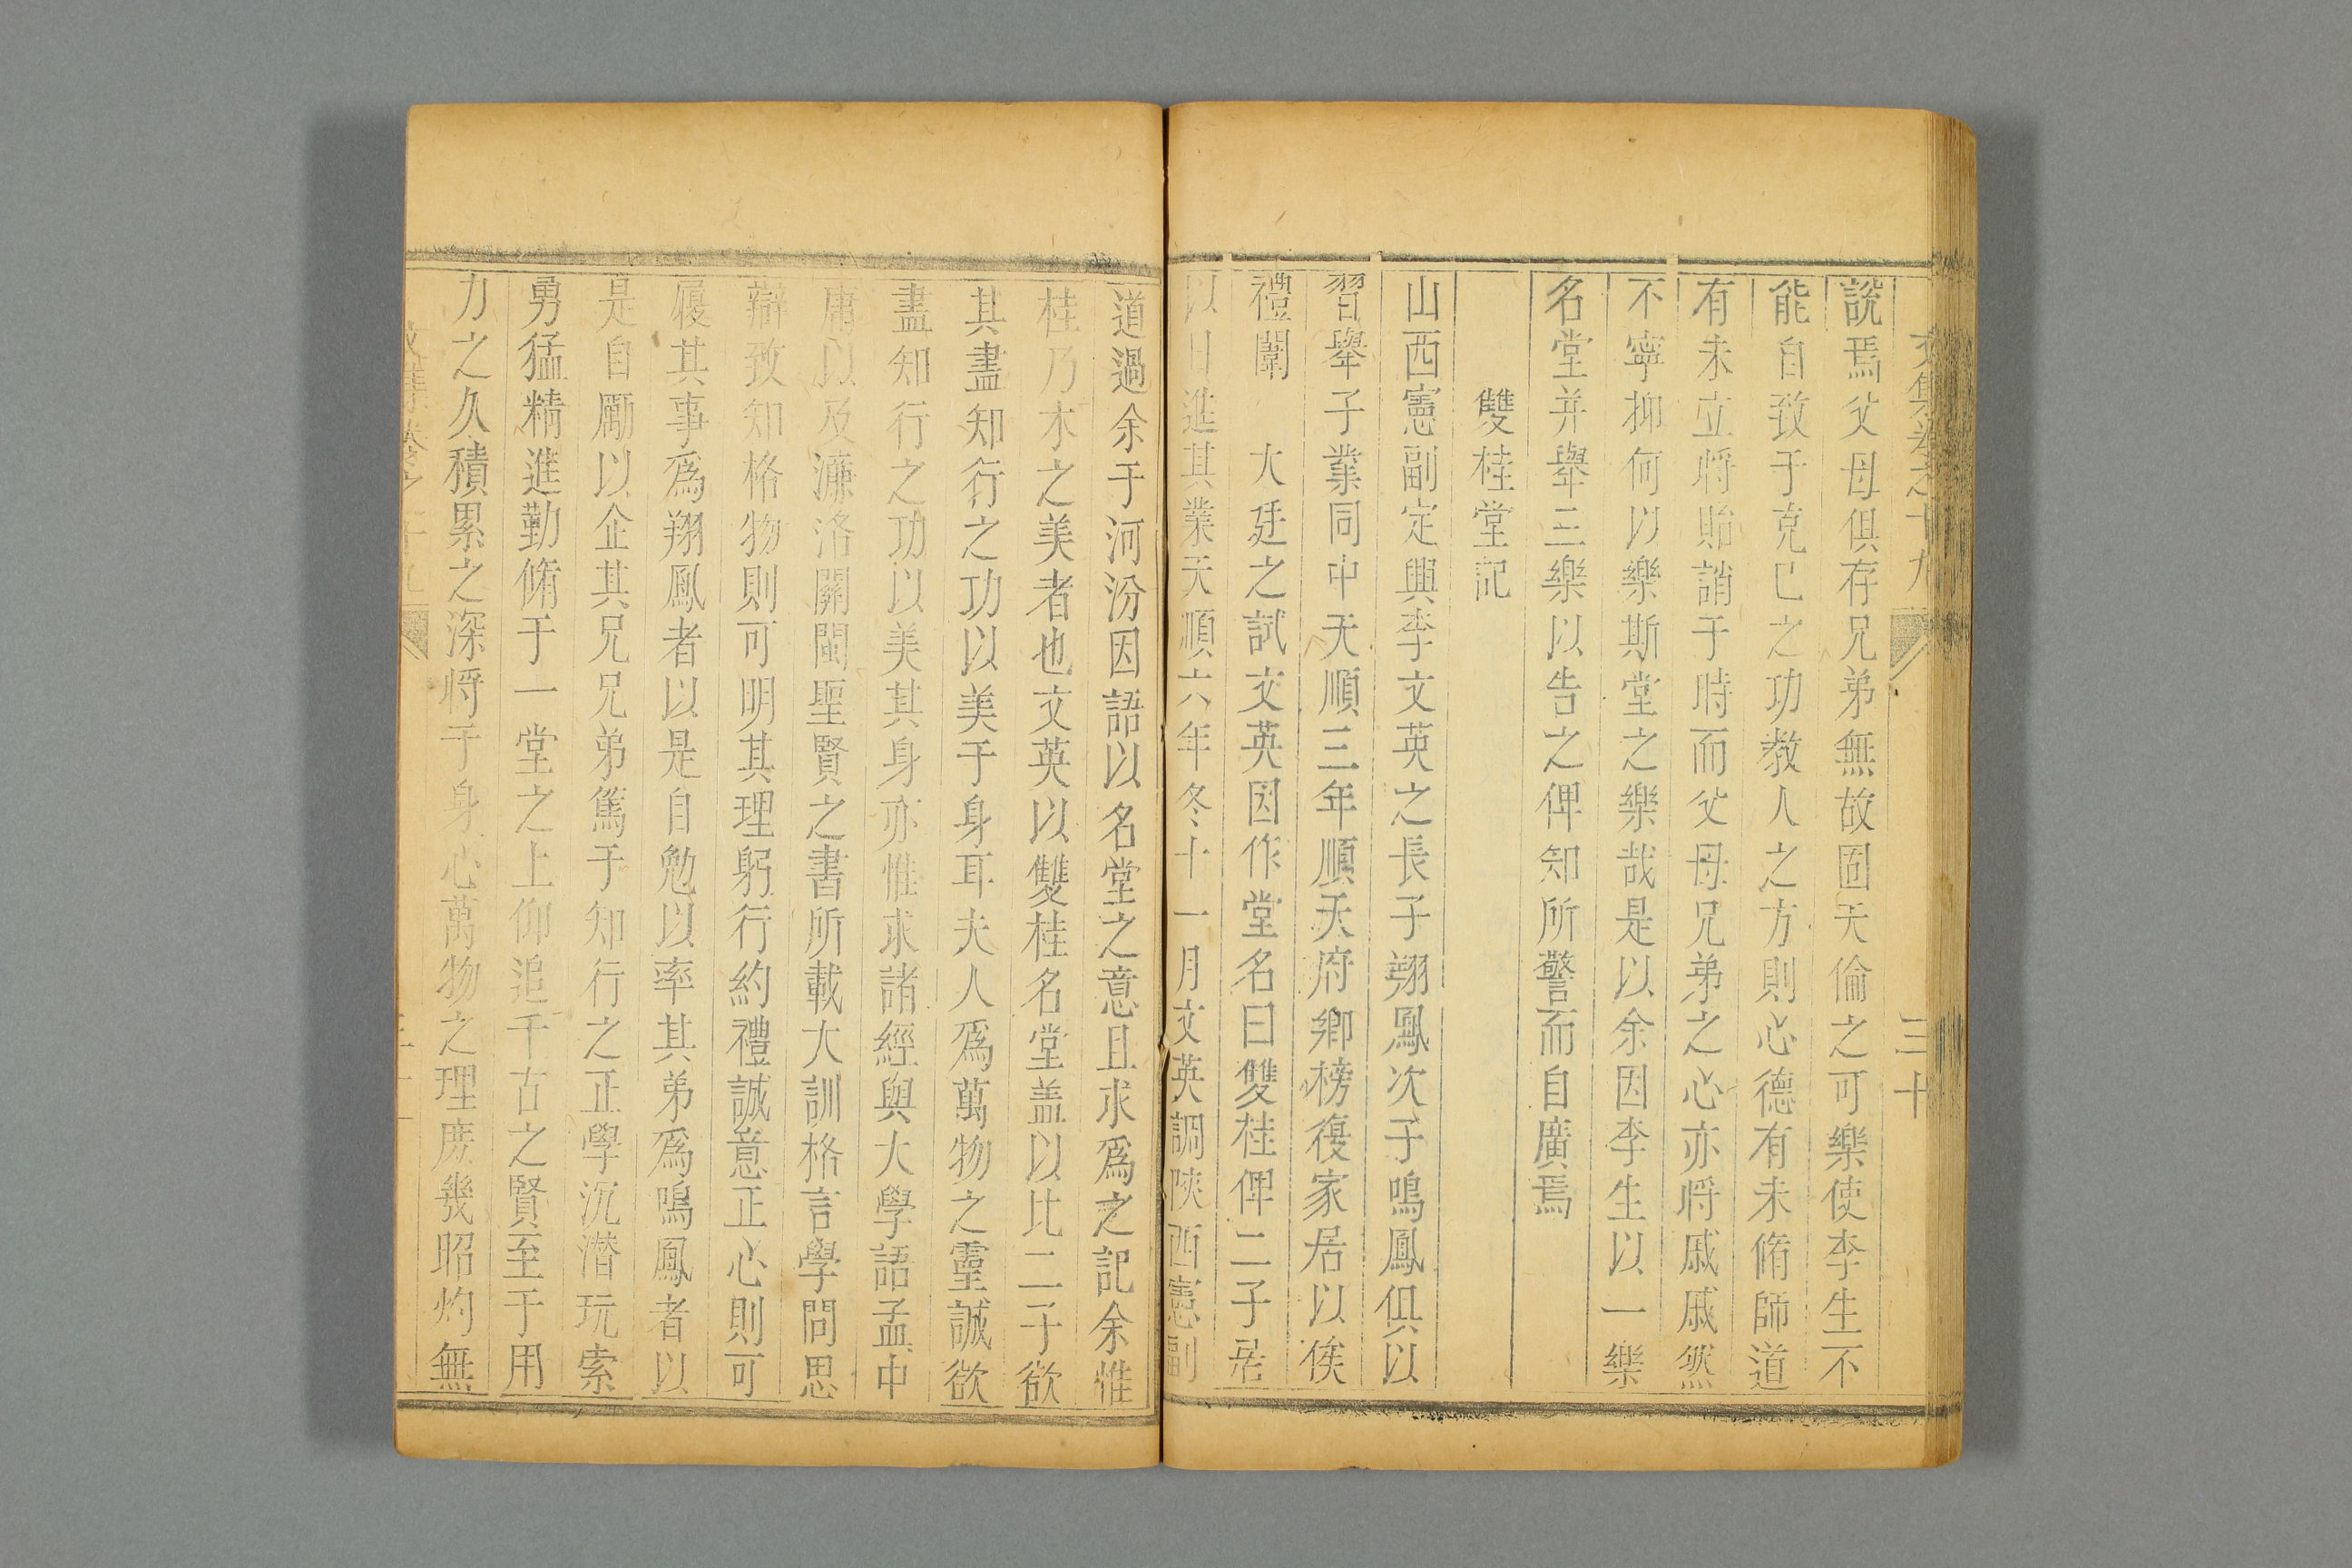 文集卷之十九 三十
說焉父母俱存兄弟無故固天倫之可樂使李生不
能自致于克己之功教人之方則心德有未脩師道
有未立将貽誚于時而父母兄弟之心亦将戚戚然
不寧抑何以樂斯堂之樂哉是以余因李生以一樂
名堂并舉三樂以告之俾知所警而自廣焉
雙桂堂記
山西憲副定興李文英之長子翔鳳次子鳴鳳俱以
習舉子業同中天順三年順天府鄉榜復家居以俟
禮闈 大廷之試文英因作堂名曰雙桂俾二子居
以日進其業天順六年冬十一月文英調陝西憲副
道過余于河汾因語以名堂之意且求爲之記余惟
桂乃木之美者也文英以雙桂名堂盖以比二子欲
其盡知行之功以美于身耳夫人爲萬物之靈誠欲
盡知行之功以美其身亦惟求諸經與大學語孟中
庸以及濂洛關閩聖賢之書所載大訓格言學問思
辯致知格物則可明其理躬行約禮誠意正心則可
履其事爲翔鳳者以是自勉以率其弟爲鳴鳳者以
是自勵以企其兄兄弟篤于知行之正學沉潜玩索
勇猛精進勤脩于一堂之上仰追千古之賢至于用
力之久積累之深将于身心萬物之理庶幾昭灼無